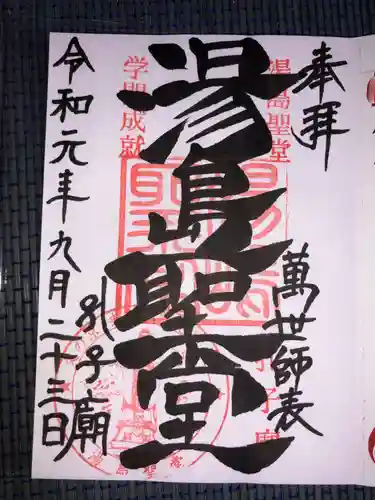 奉拝
湯島聖堂
萬世師表
湯島聖堂
学問成就
孔子廟
令和元年九月二十三日